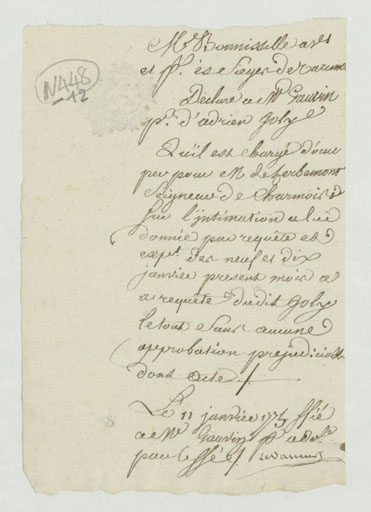 N 448
-12
Mr Bonnisselle
et pr. es sieges de
Declare a Mr Gauvin
pr. d'adrien Joly
Qu'il est chargé d'occu
per pour M de
Seigneur de Charmois
sur l'intimation a lui
donnée par requête et
expt. des neuf et dix
janvier present mois a
a requête dudit Joly
le tout sans aucune
approbation prejudiciable
dont acte
Le 11 janvier
a Me Gauvin pr
par